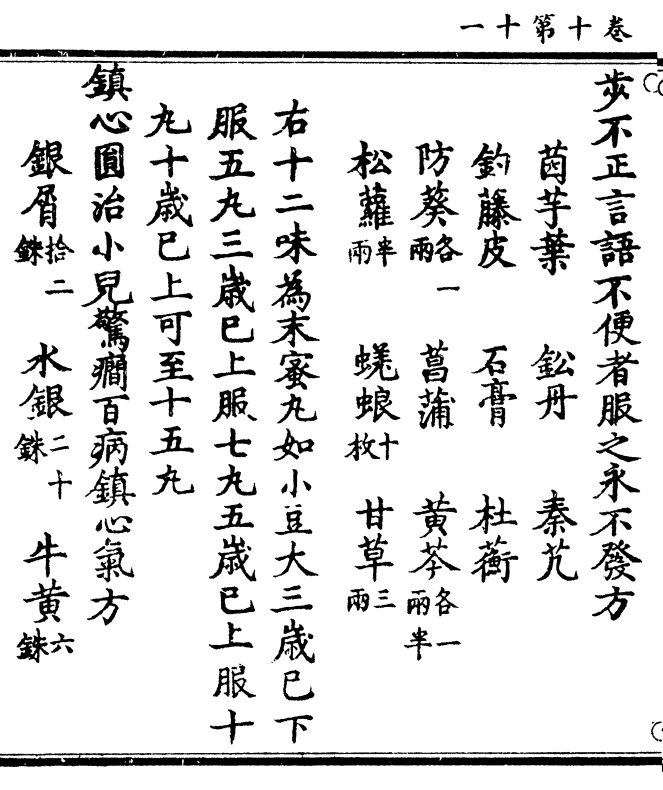 卷十第十一
步不正言語不便者服之永不發方
茵芋葉 鈆丹 秦艽
釣藤皮 石膏 杜蘅
防葵各一兩 菖蒲 黄芩各一兩半
松蘿半兩 蜣蜋十枚 甘草三兩
右十二味為末蜜丸如小豆大三歲巳下
服五丸三歲巳上服七丸五歲巳上服十
丸十歲巳上可至十五丸
鎮心圓治小兒驚癇百病鎮心氣方
銀屑拾二銖 水銀二十銖 牛黄六銖